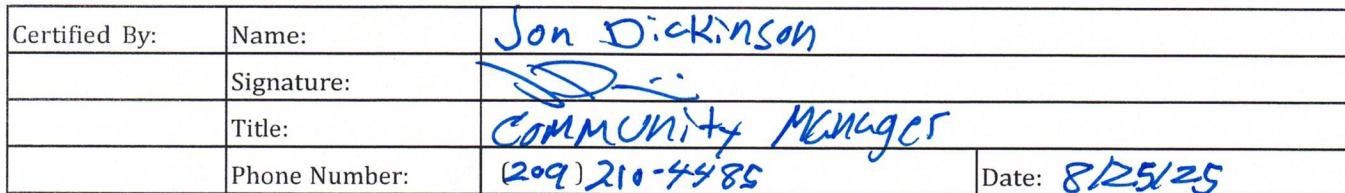 Certified By: Name: Jon Dickinson
Signature:
Title: Community Manager
Phone Number: (209) 210-4485 Date: 8/25/25